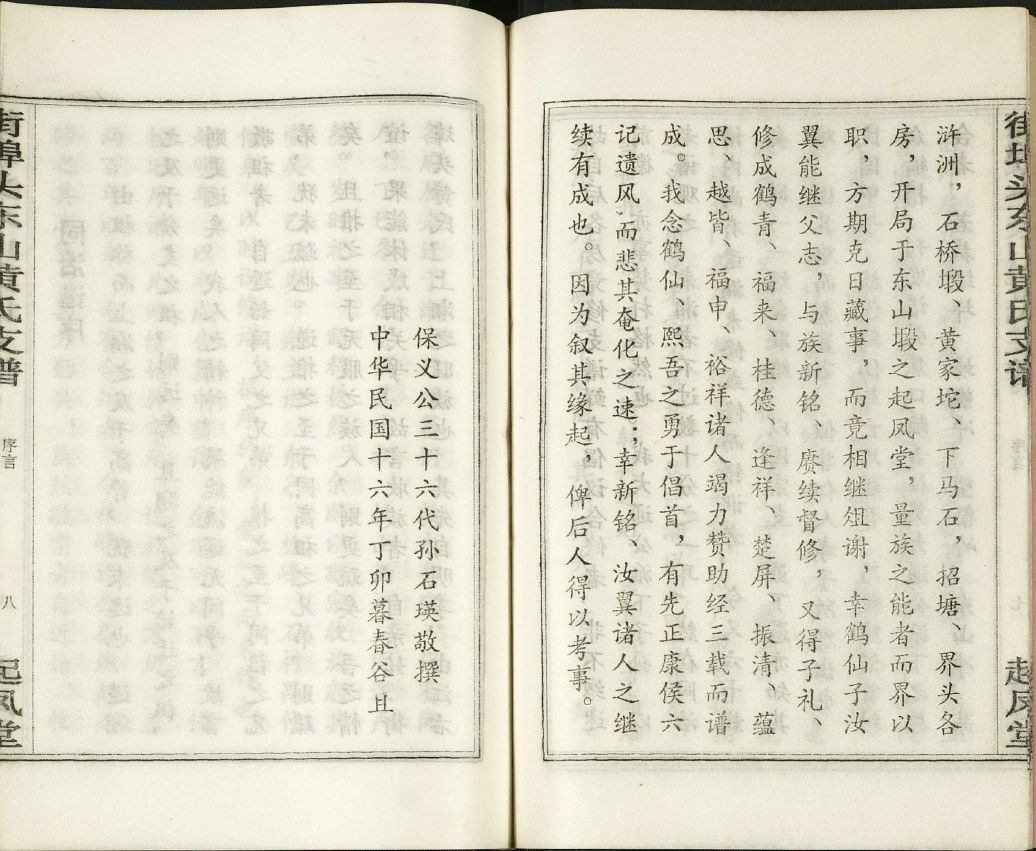 街埠头东山黄氏支谱
起凤堂
浒洲，石桥塅、黄家坨、下马石，招塘、界头各
房，开局于东山塅之起凤堂，量族之能者而界以
职，方期克日蒇事，而竞相继俎谢，幸鹤仙子汝
翼能继父志，与族新铭、赓续督修，又得子礼、
修成鹤青、福来、桂德、逢祥、楚屏、振清、蕴
思、越皆、福申、裕祥诸人竭力赞助经三载而谱
成。我念鹤仙、熙吾之勇于倡首，有先正康侯六
记遗风，而悲其奄化之速；幸新铭、汝翼诸人之继
续有成也。因为叙其缘起，俾后人得以考事。
保义公三十六代孙石瑛敬撰
中华民国十六年丁卯暮春谷旦
街埠头东山黄氏支谱
序言
八
起凤堂